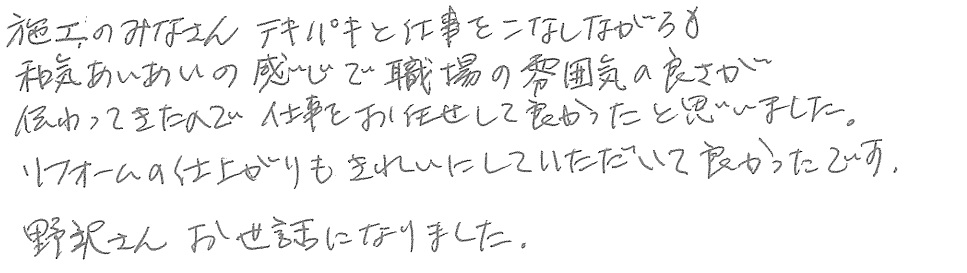 施工のみなさん テキパキと仕事をこなしながらも
和気あいあいの感じで職場の雰囲気の良さが
伝わってきたので 仕事をお任せして良かったと思いました。
リフォームの仕上がりもきれいにしていただいて良かったです.
野沢さん お世話になりました.